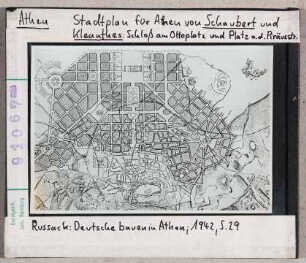 Athen
Stadtplan für Athen von Schaubert und
Kleanthes: Schloß am Ottoplatz und Platz a.d. Piräusstr.
91069
Russack: Deutsche bauen in Athen; 1942, S. 29